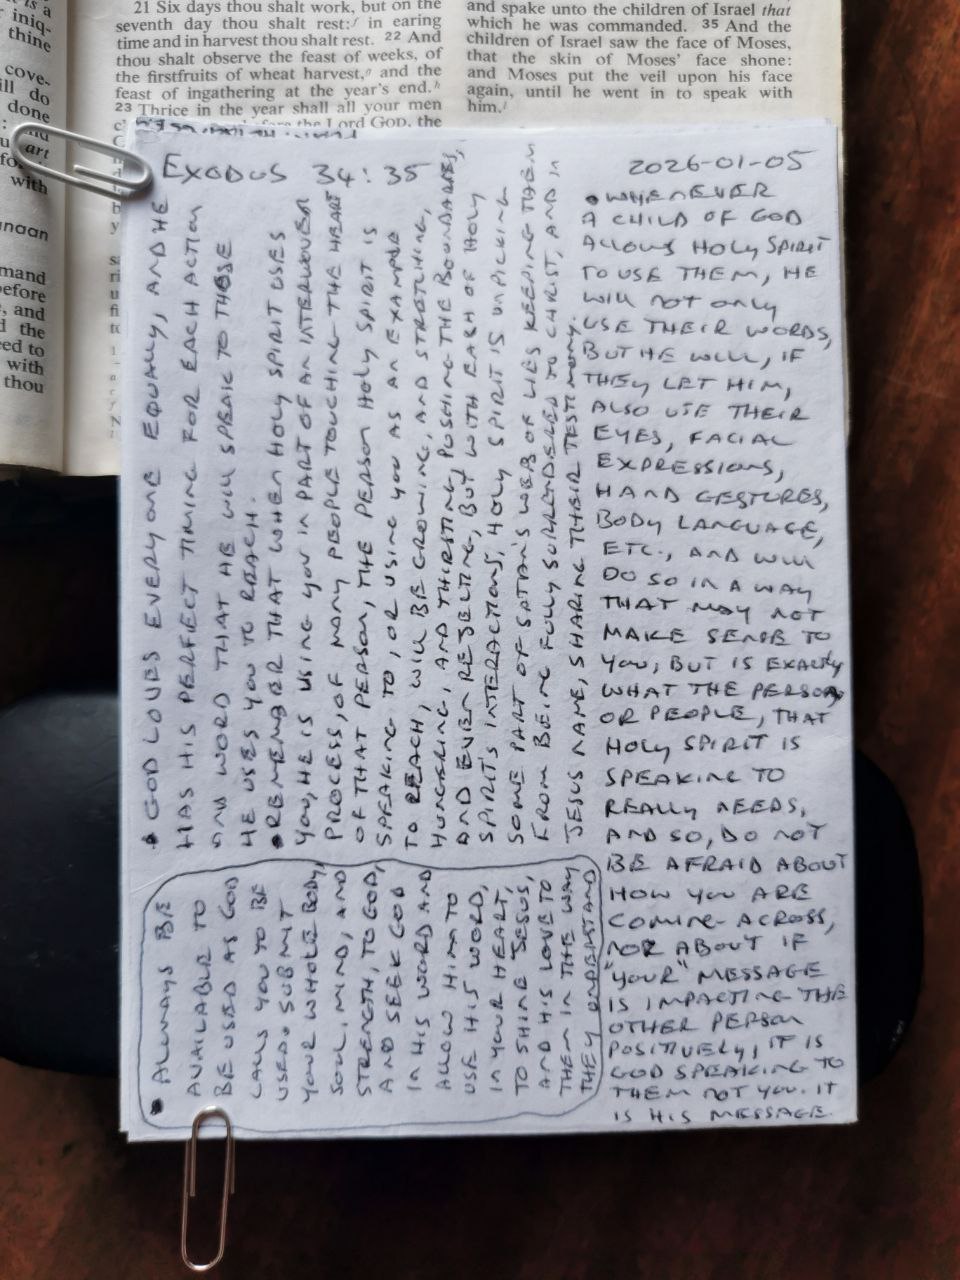 is a
iniq-
thine
cove-
ill do
done
: and
art
with
naan
mand
before
s, and
d the
eed to
with
thou
21 Six days thou shalt work, but on the
seventh day thou shalt rest:f in earing
time and in harvest thou shalt rest. 22 And
thou shalt observe the feast of weeks, of
the firstfruits of wheat harvest,g and the
feast of ingathering at the year's end.h
23 Thrice in the year shall all your men
the Lord GOD, the
and spake unto the children of Israel that
which he was commanded. 35 And the
children of Israel saw the face of Moses,
that the skin of Moses' face shone:
and Moses put the veil upon his face
again, until he went in to speak with
him.i
EXODUS 34:35
2026-01-05
• WHENEVER
A CHILD OF GOD
ALLOWS HOLY SPIRIT
TO USE THEM, HE
WILL NOT ONLY
USE THEIR WORDS,
BUT HE WILL, IF
THEY LET HIM,
ALSO USE THEIR
EYES, FACIAL
EXPRESSIONS,
HAND GESTURES,
BODY LANGUAGE,
ETC., AND WILL
DO SO IN A WAY
THAT MAY NOT
MAKE SENSE TO
YOU, BUT IS EXACTLY
WHAT THE PERSON
OR PEOPLE, THAT
HOLY SPIRIT IS
SPEAKING TO
REALLY NEEDS,
AND SO, DO NOT
BE AFRAID ABOUT
HOW YOU ARE
COMING ACROSS,
NOR ABOUT IF
"YOUR" MESSAGE
IS IMPACTING THE
OTHER PERSON
POSITIVELY, IT IS
GOD SPEAKING TO
THEM NOT YOU. IT
IS HIS MESSAGE.
• GOD LOVES EVERYONE EQUALLY, AND HE
HAS HIS PERFECT TIMING FOR EACH ACTION
AND WORD THAT HE WILL SPEAK TO THOSE
HE USES YOU TO REACH.
• REMEMBER THAT WHEN HOLY SPIRIT USES
YOU, HE IS USING YOU IN PART OF AN INTERWOVEN
PROCESS, OF MANY PEOPLE TOUCHING THE HEART
OF THAT PERSON, THE PERSON HOLY SPIRIT IS
SPEAKING TO, OR USING YOU AS AN EXAMPLE
TO REACH, WILL BE GROWING, AND STRETCHING,
HUNGERING, AND THIRSTING, PUSHING THE BOUNDARIES,
AND EVEN REJECTING, BUT WITH EACH OF HOLY
SPIRIT'S INTERACTIONS, HOLY SPIRIT IS UNPICKING
SOME PART OF SATAN'S WEB OF LIES KEEPING THEM
FROM BEING FULLY SURRENDERED TO CHRIST, AND IN
JESUS NAME, SHARING THEIR TESTIMONY.
• ALWAYS BE
AVAILABLE TO
BE USED AS GOD
CALLS YOU TO BE
USED. SUBMIT
YOUR WHOLE BODY,
SOUL, MIND, AND
STRENGTH, TO GOD,
AND SEEK GOD
IN HIS WORD AND
ALLOW HIM TO
USE HIS WORD,
IN YOUR HEART,
TO SHINE JESUS,
AND HIS LOVE TO
THEM IN THE WAY
THEY UNDERSTAND